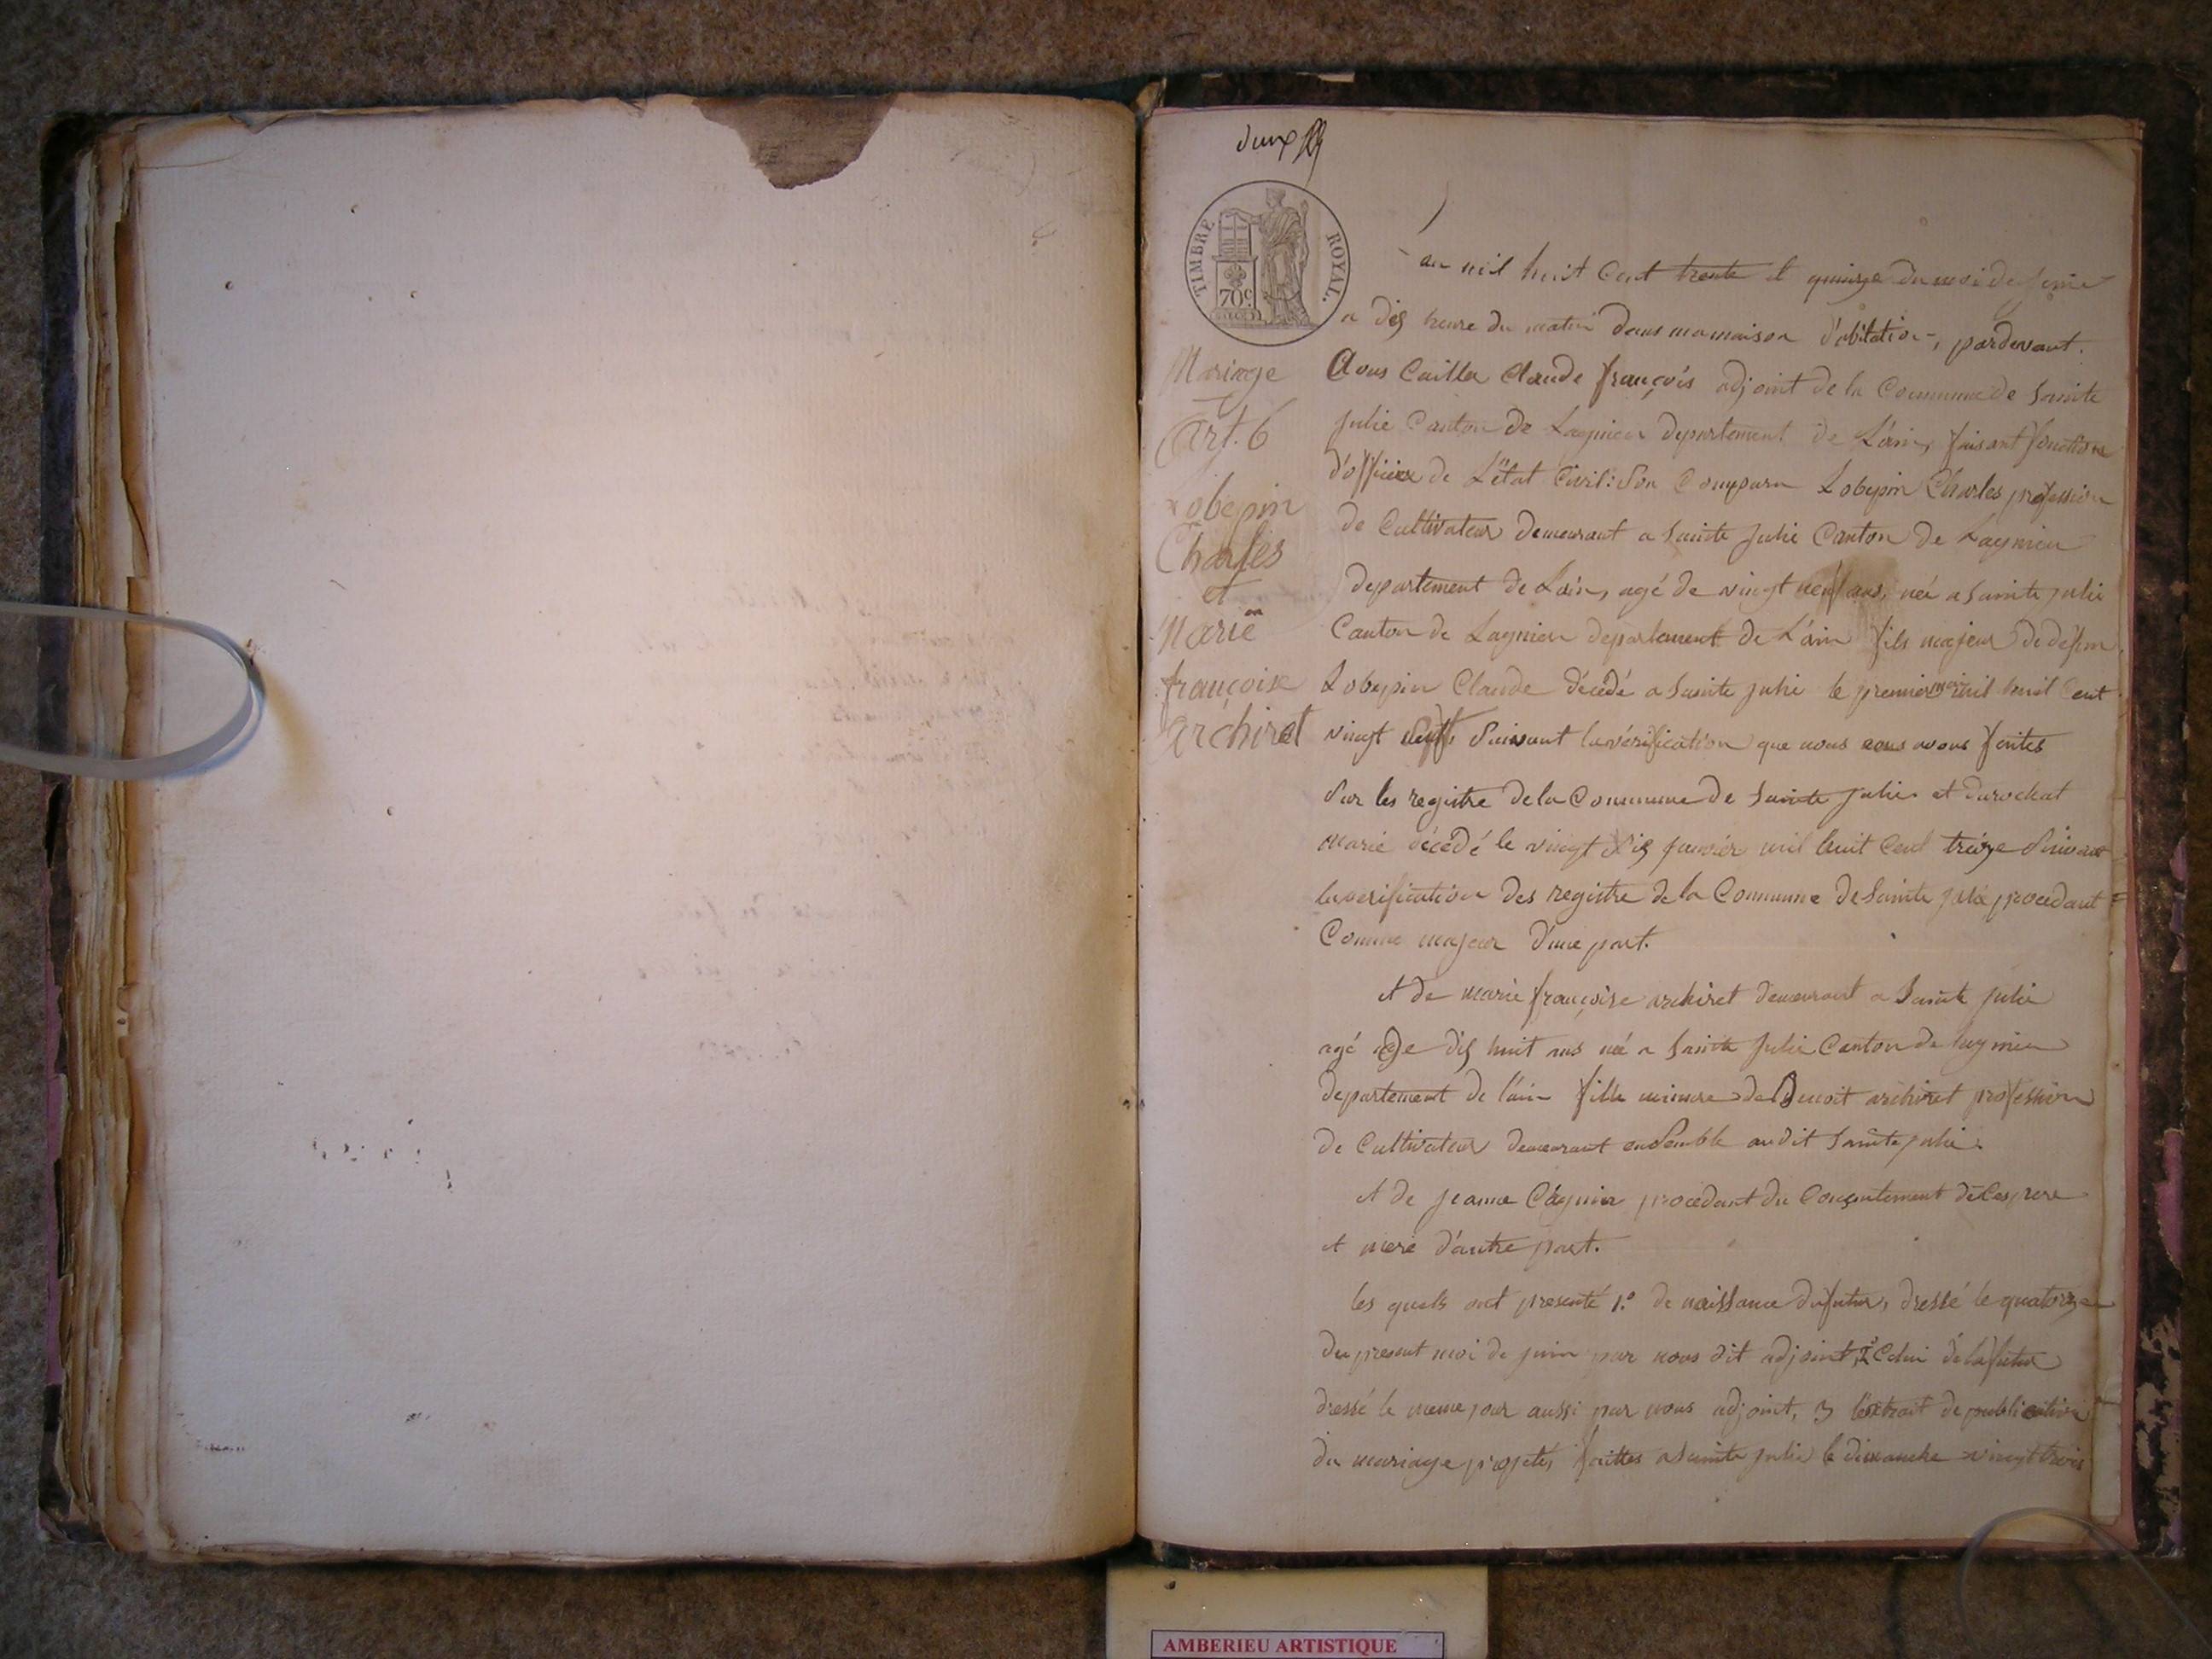 deux
TIMBRE ROYAL.
70c
Mariage
Art. 6
Lobepin
Charles
et
Marie
françoise
archiret
L'an mil huit Cent trente et quinze du moi de juin
a dix heure du matin dans ma maison d'abitation, pardevant.
Nous Cailler Claude françois adjoint de la Commune de Sainte
julie Canton de Lagnieu departement de L'ain, faisant fonction
d'officier de L'état Civil: Son Comparu Lobepin Charles profession
de Cultivateur demeurant a Sainte julie Canton de Lagnieu
departement de Lain, agé de vingt neuf ans, née a Sainte julie
Canton de Lagnieu departement de L'ain fils majeur de defun
Lobepin Claude décédé a Sainte julie le premier mai mil huit Cent
vingt Suivant la vérification que nous avons faites
Sur les registre de la Commune de Sainte julie et durochat
marie décédé le vingt Six janvier mil huit Cent treize Suivant
la verification des registre de la Commune de Sainte julie procedant
Comme majeur d'une part.
et de marie françoise archiret demeurant a Sainte julie
agé de dix huit ans née a Sainte julie Canton de lagnieu
departement de l'ain fille mineure de Benoit archiret profession
de Cultivateur demeurant enSemble audit Sainte julie.
et de jeanne Cagnin procedant du Conçentement de Ces pere
et mere d'autre part.
les quels ont presenté 1.° de naissance du futur, dressé le quatorze
du present moi de juin par nous dit adjoint, 2° Celui de la futur
dressé le meme jour aussi par nous adjoint, 3 l'extrait de publication
du mariage projeté, faittes a Sainte julie le dimanche vingt trois
AMBERIEU ARTISTIQUE